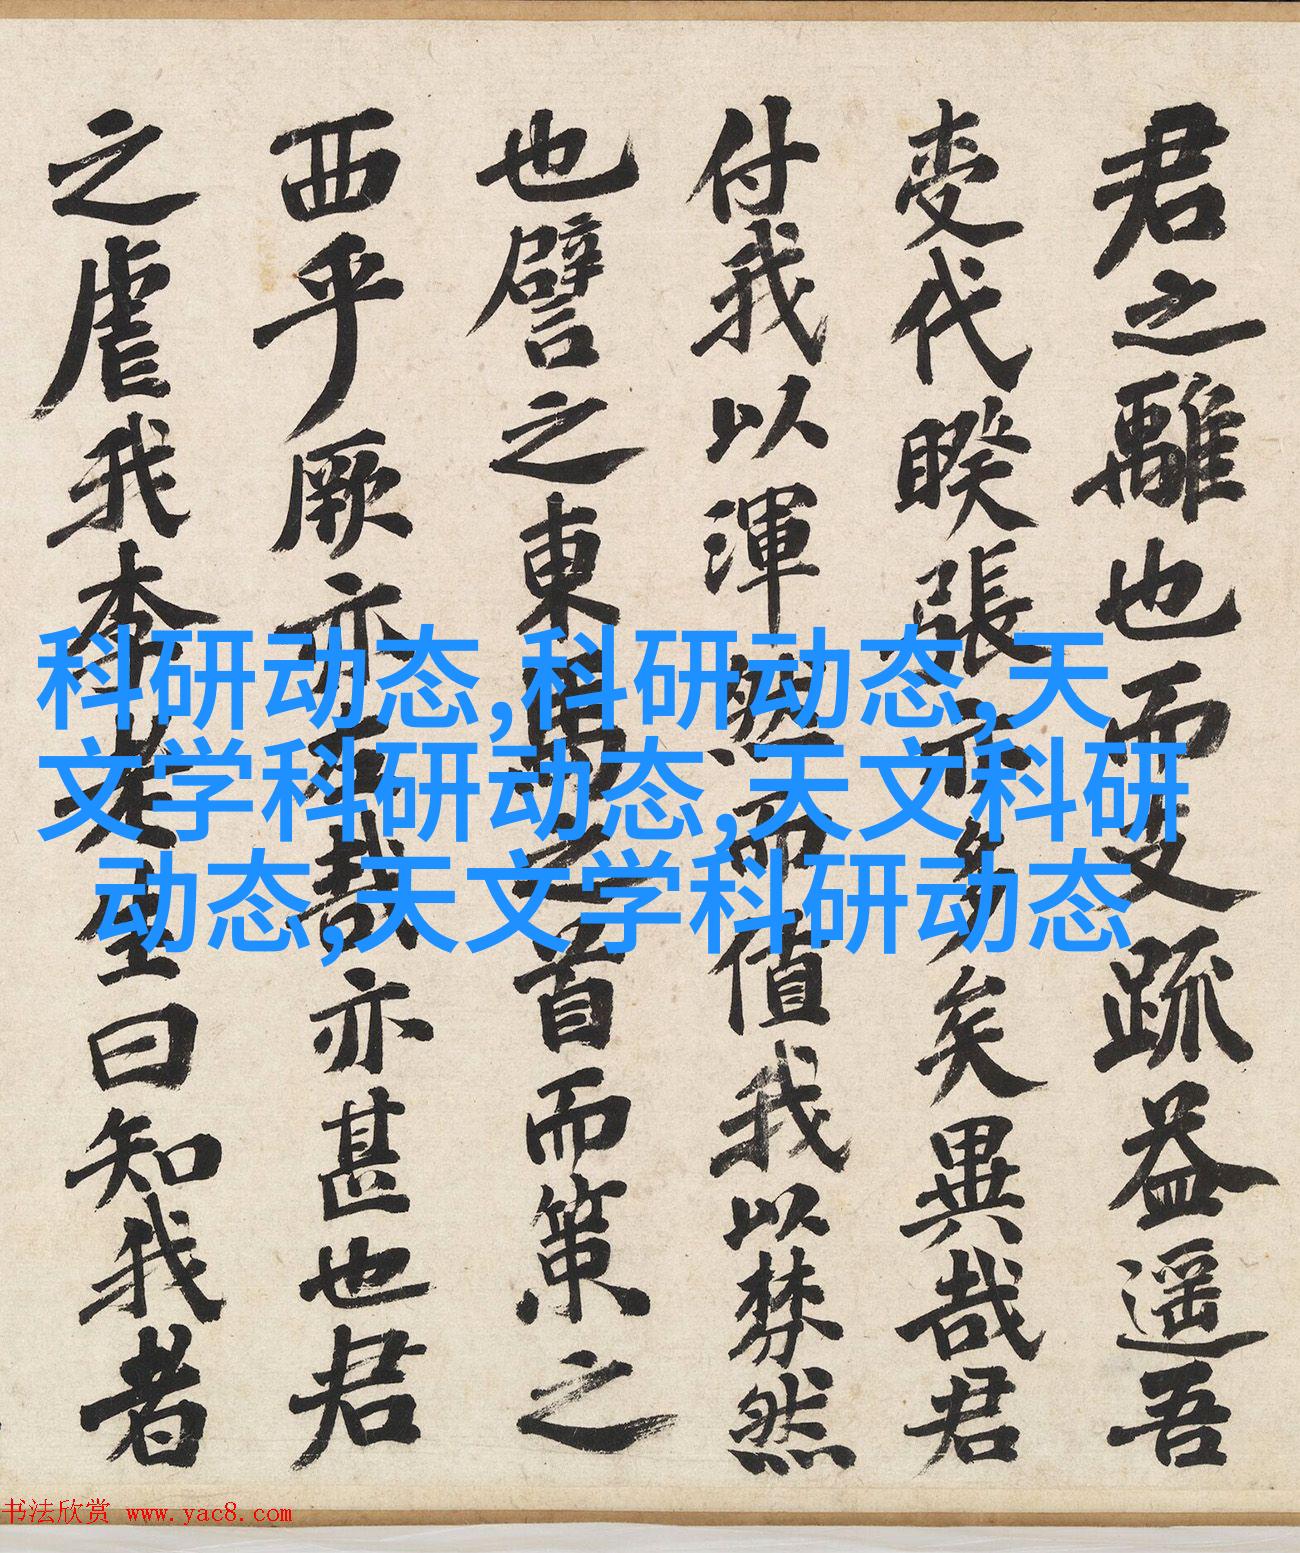 君之離也而疏益遥吾
变代睽張亦多矣異哉君
付我以渾然而值我以棼然
也譬之東馬之首而策之
西乎厥亦哉亦甚也君
之虐我李老生曰知我者
科研动态,科研动态,天
文学科研动态,天文科研
动态,天文学科研动态
书法欣赏 www.yac8.com